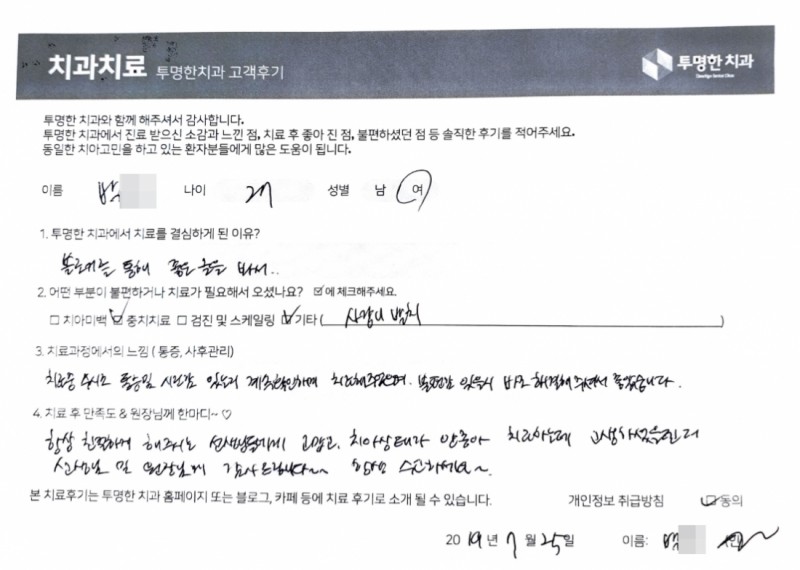 치과치료 투명한치과 고객후기
투명한 치과
투명한 치과와 함께 해주셔서 감사합니다.
투명한 치과에서 진료 받으신 소감과 느낀 점, 치료 후 좋아 진 점, 불편하셨던 점 등 솔직한 후기를 적어주세요.
동일한 치아고민을 하고 있는 환자분들에게 많은 도움이 됩니다.
이름 나이 27 성별 남 여
1. 투명한 치과에서 치료를 결심하게 된 이유?
블로그를 통해 좋은 글을 봐서..
2. 어떤 부분이 불편하거나 치료가 필요해서 오셨나요? ☑에 체크해주세요.
☐ 치아미백 ☑ 충치치료 ☐ 검진 및 스케일링 ☑ 기타 ( 사랑니 발치 )
3. 치료과정에서의 느낌 ( 통증, 사후관리)
치료중 수시로 불편함 있는지 계속확인하며 치료해주셨으며, 불편감 있을시 바로 해결해 주셔서 좋았습니다.
4. 치료 후 만족도 & 원장님께 한마디~ ♡
항상 친절하게 해주시는 선생님들에게 고맙고, 치아상태가 안좋아 치료하는데 고생하셨을
선생님 및 원장님께 감사드립니다~ 항상 수고하세요~
본 치료후기는 투명한 치과 홈페이지 또는 블로그, 카페 등에 치료 후기로 소개 될 수 있습니다. 개인정보 취급방침 ☑ 동의
2019년 7월 25일 이름: (인)